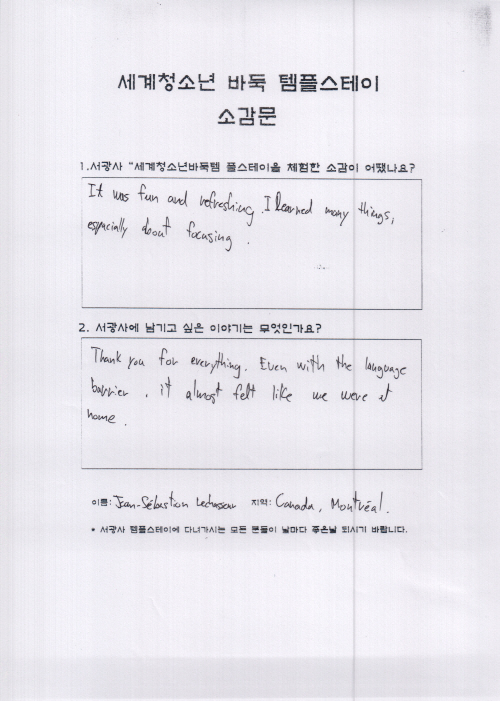 세계청소년 바둑 템플스테이
소감문
1.서광사 "세계청소년바둑템 플스테이을 체험한 소감이 어땠나요?
It was fun and refreshing. I learned many things,
especially about focusing.
2. 서광사에 남기고 싶은 이야기는 무엇인가요?
Thank you for everything. Even with the language
barrier, it almost felt like we were at
home.
이름: Jean-Sébastien 지역: Canada, Montréal.
* 서광사 템플스테이에 다녀가시는 모든 분들이 날마다 좋은날 되시기 바랍니다.